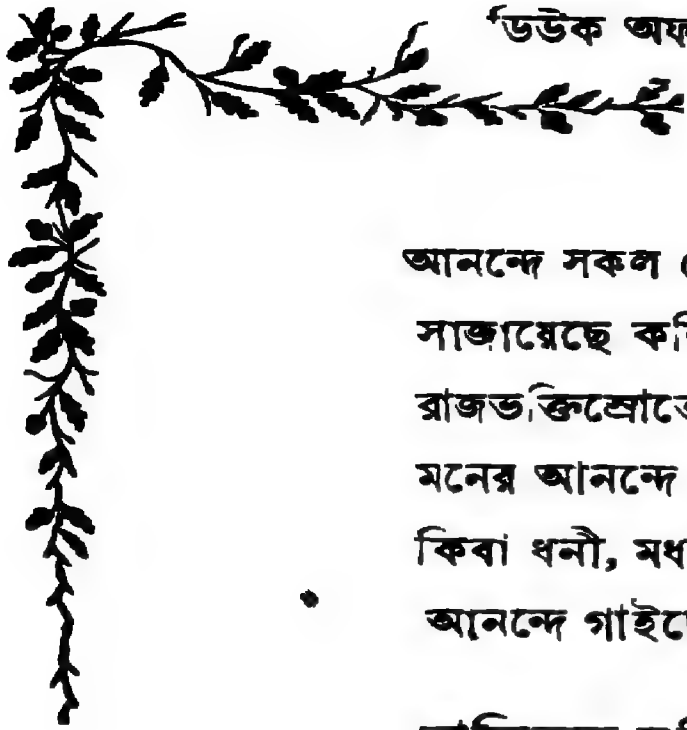 ডিউক অফ
আনন্দে সকল
সাজায়েছে
রাজভক্তিস্রোতে
মনের আনন্দে
কিবা ধনী,
আনন্দে